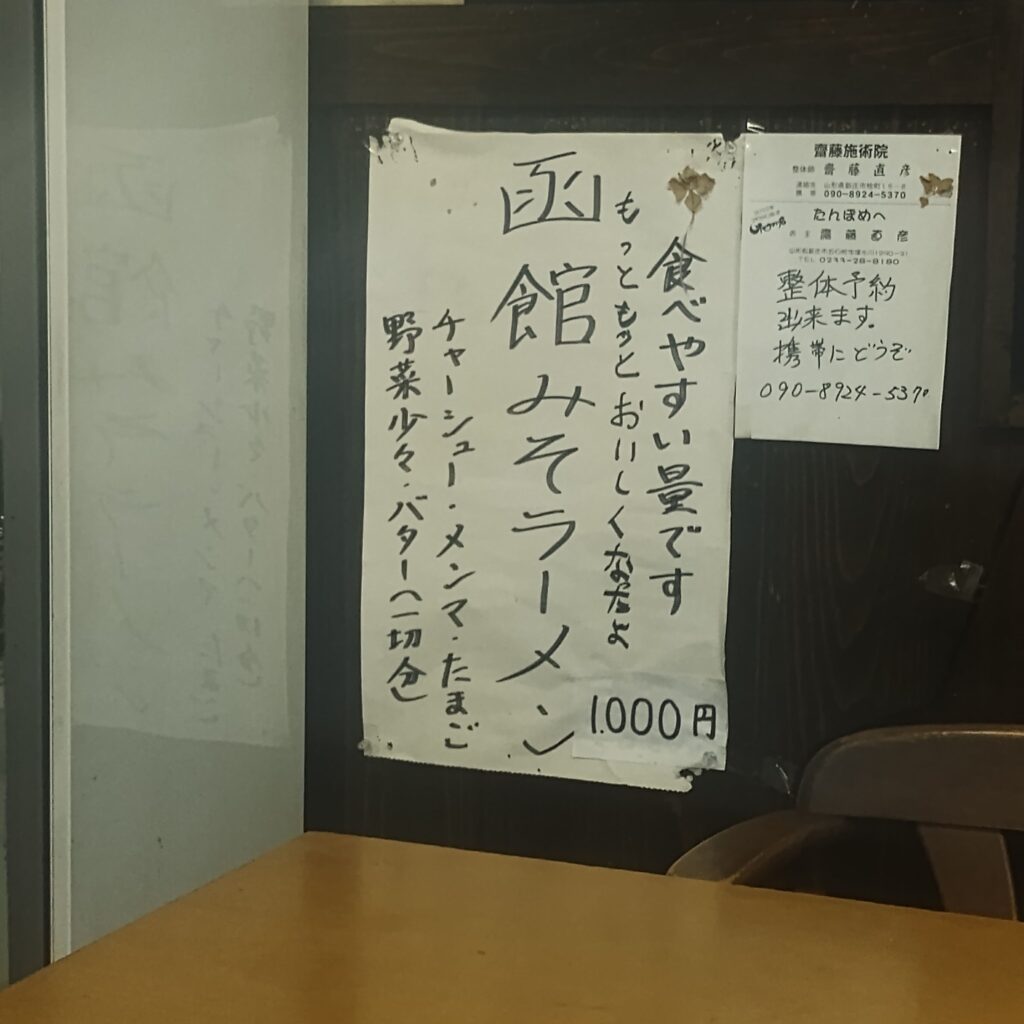 食べやすい量です
もっともっとおいしくなったよ
函館みそラーメン
チャーシュー・メンマ・たまご
野菜少々・バター(一切分)
1.000円
齋藤施術院
整体師 齋藤直彦
090-8924-5370
たんぽめへ
店主 齋藤直彦
TEL 0233-28-8180
整体予約
出来ます。
携帯にどうぞ
090-8924-5370